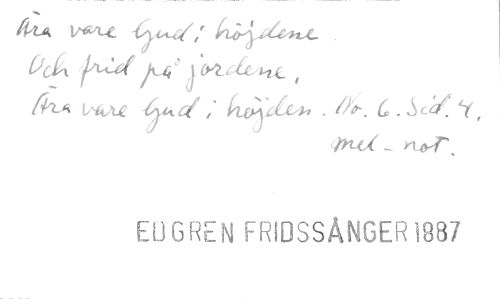 Ära vare Gud i höjdene
Och frid på jordene,
Ära vare Gud i höjden. No. 6. Sid. 4.
mel-not.
EDGREN FRIDSSÅNGER 1887